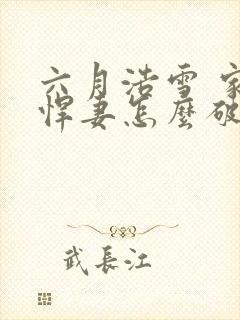 六月浩雪 家
悍妻怎麼破
武長江